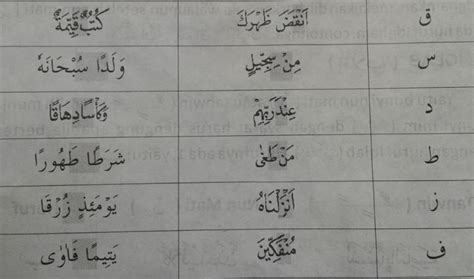 ق اَنْقَضَ ظَهْرَكَ كُتُبٌ قَيِّمَةٌ
س مِنْ سِجِّيْلٍ وَلَدًا سُبْحَانَهٗ
د عِنْدَرَبِّهِمْ وَكَأْسًادِهَاقًا
ط مَنْ طَغٰى شَرَطًا طَهُوْرًا
ز اَنْزَلْنَاهُ يَوْمَئِذٍ زُرْقًا
ف مُنْفَكِّيْنَ يَتِيْمًا فَاَوٰى